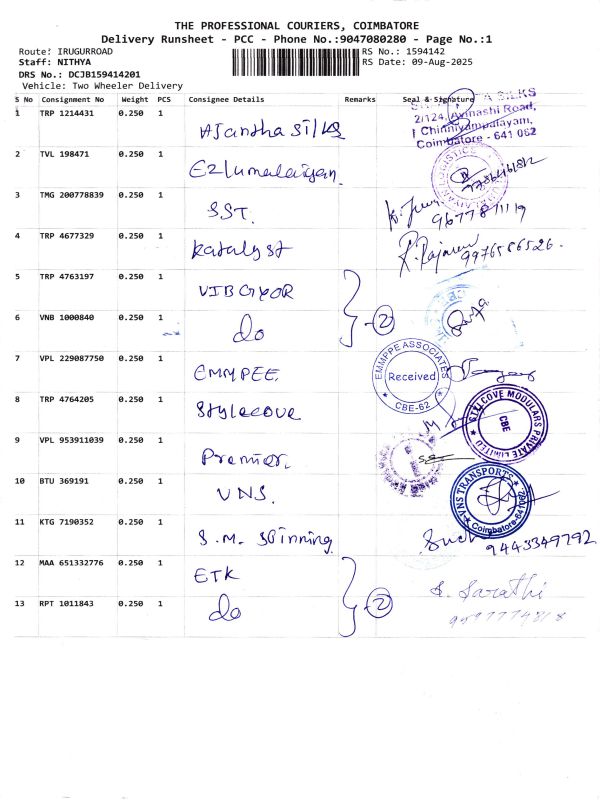 THE PROFESSIONAL COURIERS, COIMBATORE
Delivery Runsheet - PCC - Phone No.:9047080280 - Page No.:1
Route: IRUGURROAD RS No.: 1594142
Staff: NITHYA RS Date: 09-Aug-2025
DRS No.: DCJB159414201
Vehicle: Two Wheeler Delivery
S No Consignment No Weight PCS Consignee Details Remarks Seal & Signature
1 TRP 1214431 0.250 1 Ajantha silks
SILKS
2/124, Avinashi Road,
Chinniyampalayam,
Coimbatore - 641 062
2 TVL 198471 0.250 1 Ezlumalaiyan
3 TMG 200778839 0.250 1 SST. 9677871119
4 TRP 4677329 0.250 1 Katalyst R. Rajan 9976566526.
5 TRP 4763197 0.250 1 VIBGYOR
6 VNB 1000840 0.250 1 do 2
7 VPL 229087750 0.250 1 EMMPEE
EMMPPE ASSOCIATES
Received
CBE-62
8 TRP 4764205 0.250 1 Stylecove
STYLCOVE MODULARS PRIVATE LIMITED
CBE
9 VPL 953911039 0.250 1 Premier.
10 BTU 369191 0.250 1 VNS.
VNS TRANSPORTS
Coimbatore-641062
11 KTG 7190352 0.250 1 S.M. Spinning 9443349792
12 MAA 651332776 0.250 1 ETK
13 RPT 1011843 0.250 1 do 2 S. Sarathi